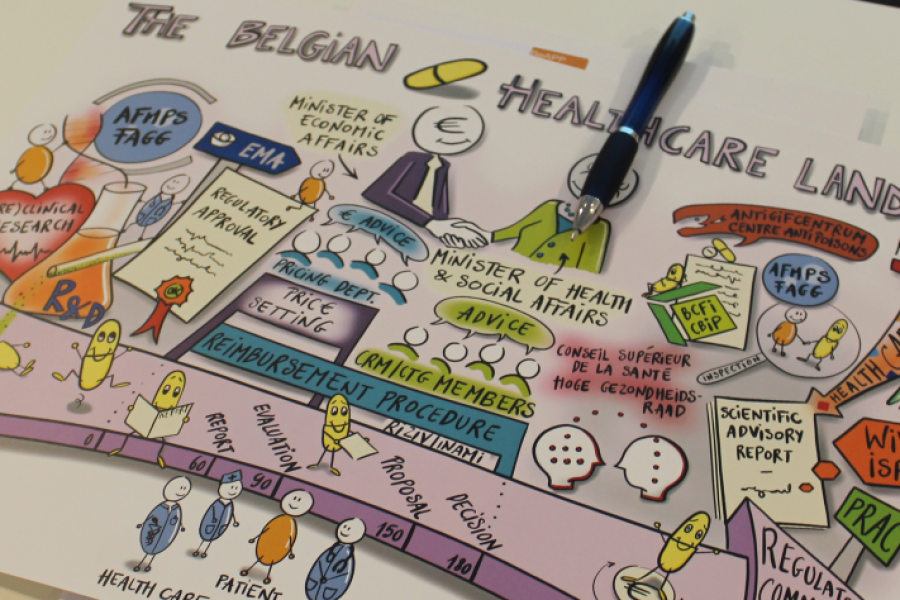 THE BELGIAN HEALTHCARE LAND
AFMPS
FAGG
EMA
MINISTER OF
ECONOMIC
AFFAIRS
€
REGULATORY
APPROVAL
RE)CLINICAL
RESEARCH
R&D
OK
€ ADVICE
PRICING DEPT.
PRICE
SETTING
MINISTER OF HEALTH
& SOCIAL AFFAIRS
ADVICE
CRM/CTG MEMBERS
REIMBURSEMENT PROCEDURE
RIZIV/INAMI
ANTIGIFCENTRUM
CENTRE ANTIPOISONS
BCFI
CBIP
AFMPS
FAGG
INSPECTION
CONSEIL SUPÉRIEUR
DE LA SANTÉ
HOGE GEZONDHEIDS-
RAAD
SCIENTIFIC
ADVISORY
REPORT
HEALTH CA
ISP
PRAC
REPORT
EVALUATION
PROPOSAL
DECISION
0
60
90
150
180
€
HEALTH CARE
PATIENT